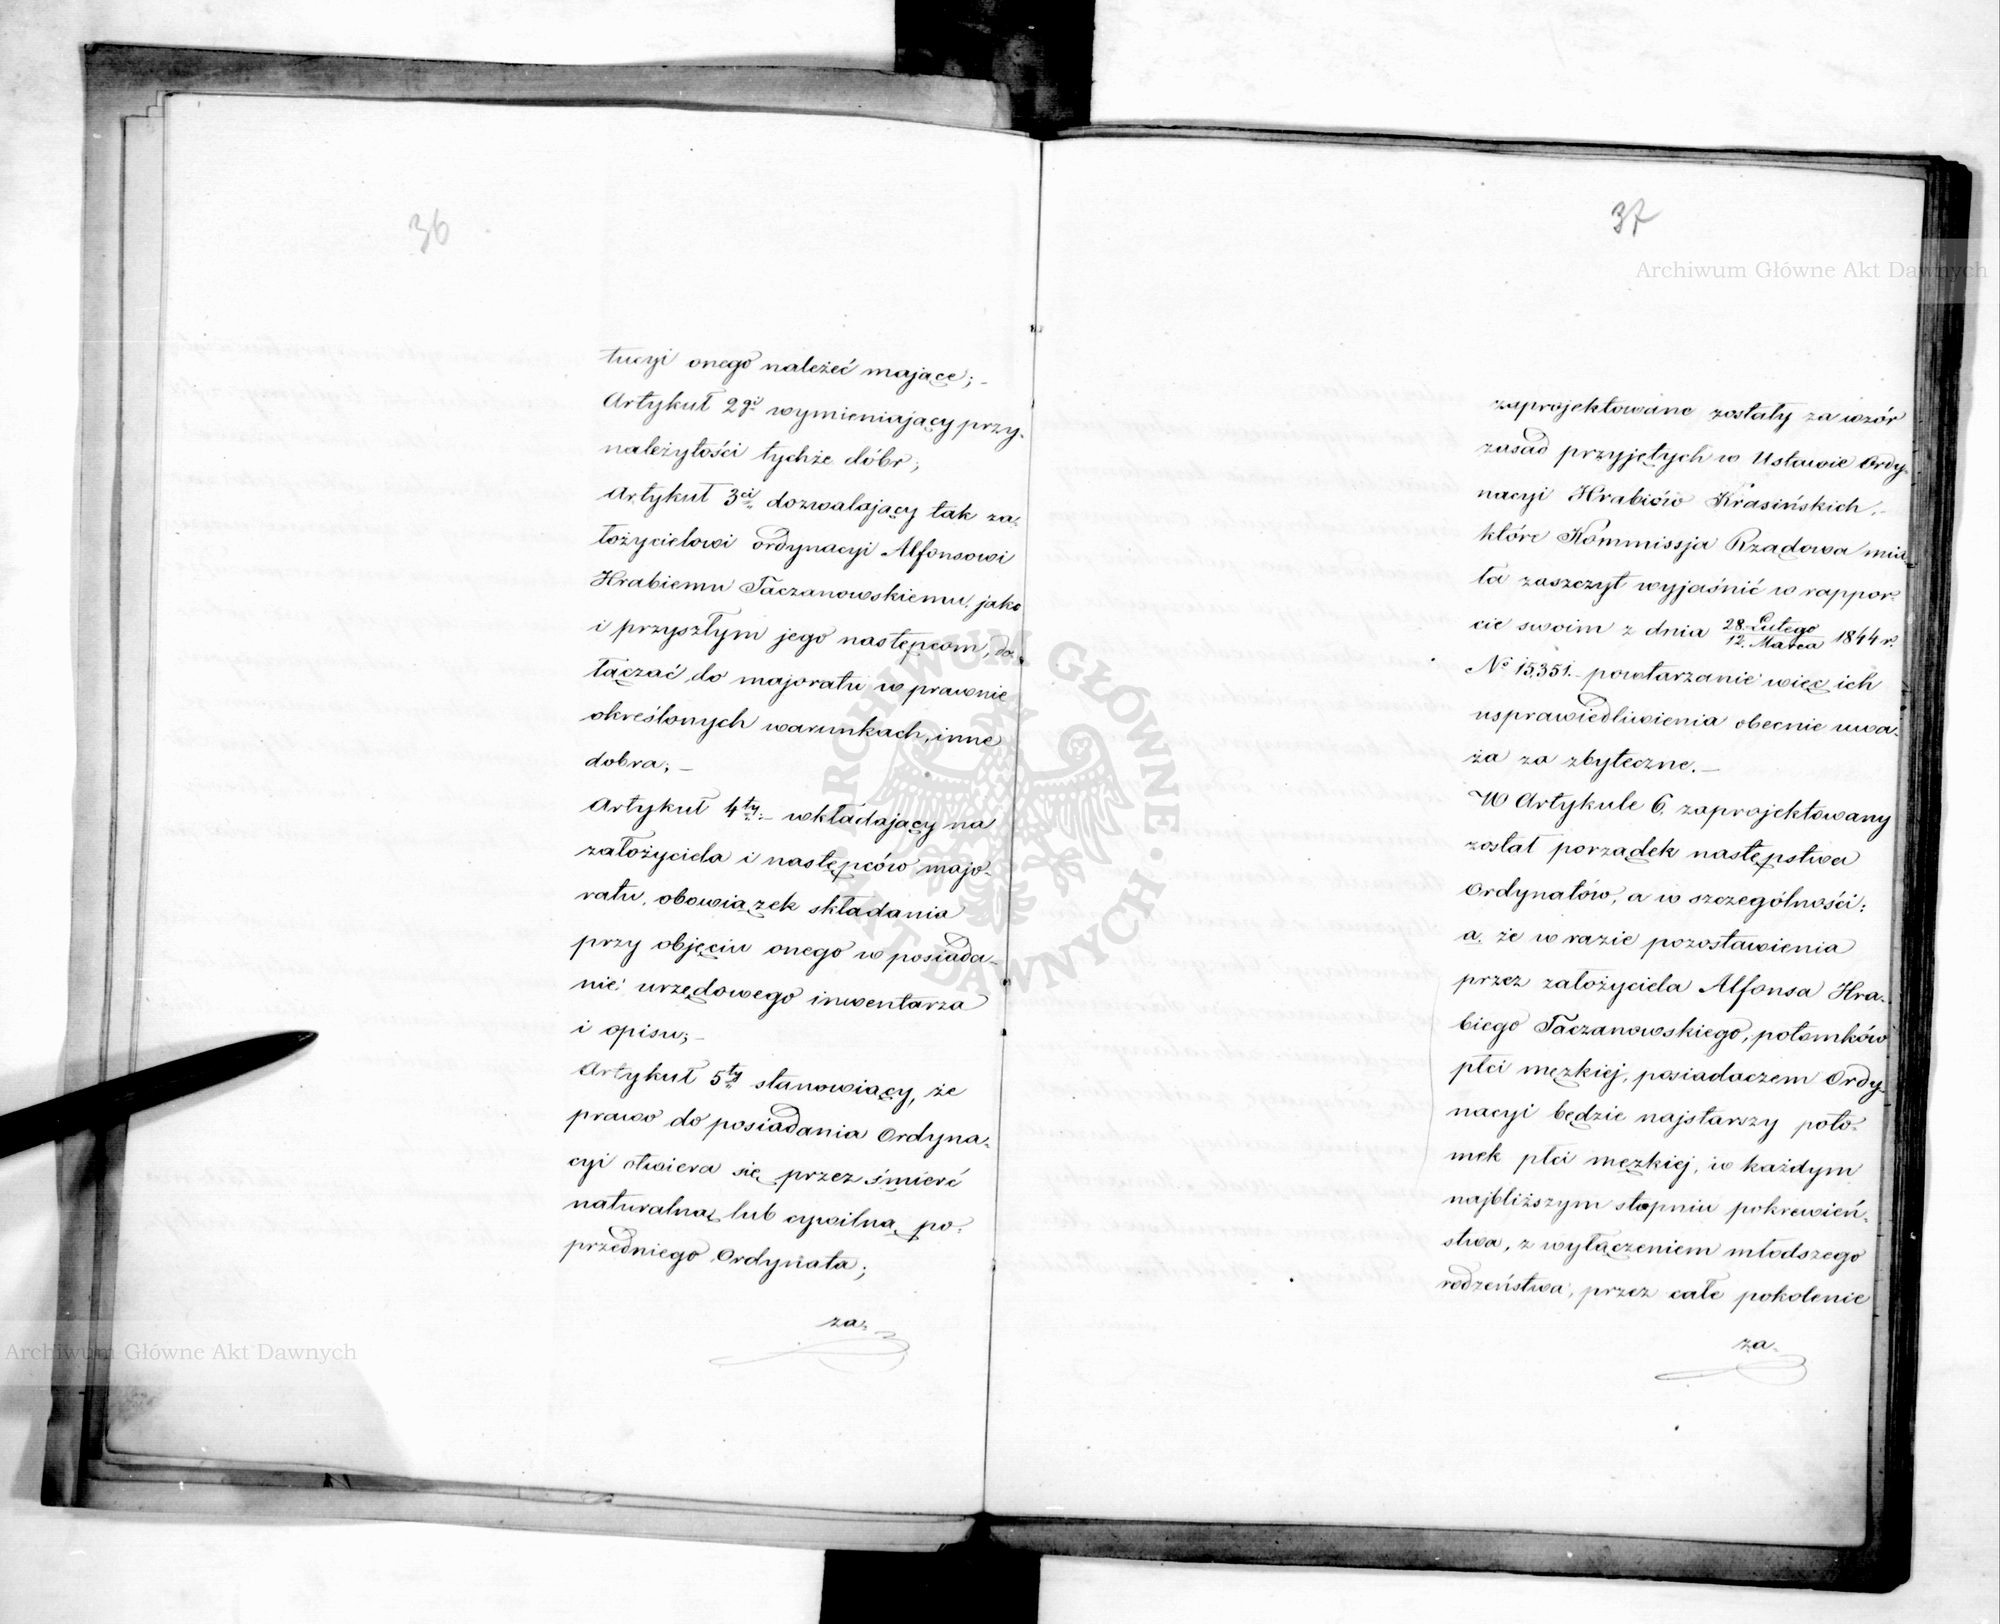 36
tucyi onego należeć mające; -
Artykuł 2gi wymieniający przy-
należytości tychże dóbr;
Artykuł 3ci dozwalający tak za-
łożycielowi ordynacyi Alfonsowi
Hrabiemu Taczanowskiemu, jako
i przyszłym jego następcom, do-
łączać do majoratu w prawnie
określonych warunkach, inne
dobra; -
Artykuł 4ty - wkładający na
założyciela i następców majo-
ratu, obowiązek składania
przy objęciu onego w posiada-
nie urzędowego inwentarza
i opisu; -
Artykuł 5ty stanowiący, że
prawo do posiadania Ordyna-
cyi otwiera się przez śmierć
naturalną lub cywilną po-
przedniego Ordynata;
za-
37
zaprojektowane zostały za wzór
zasad przyjętych w Ustawie Ordy-
nacyi Hrabiów Krasińskich, -
które Kommissja Rządowa mia-
ła zaszczyt wyjaśnić w rappor-
cie swoim z dnia 28 Lutego / 12 Marca 1844 r.
No 15,351. - powtarzanie więc ich
usprawiedliwienia obecnie uwa-
ża za zbyteczne. -
W Artykule 6. zaprojektowany
został porządek następstwa
Ordynatów, a w szczególności:
a. że w razie pozostawienia
przez założyciela Alfonsa Hra-
biego Taczanowskiego, potomków
płci męzkiej, posiadaczem Ordy-
nacyi będzie najstarszy poto-
mek płci męzkiej, w każdym
najbliższym stopniu pokrewień-
stwa, z wyłączeniem młodszego
rodzeństwa, przez całe pokolenie
za-
Archiwum Główne Akt Dawnych
Archiwum Główne Akt Dawnych
ARCHIWUM GŁÓWNE · AKT DAWNYCH ·